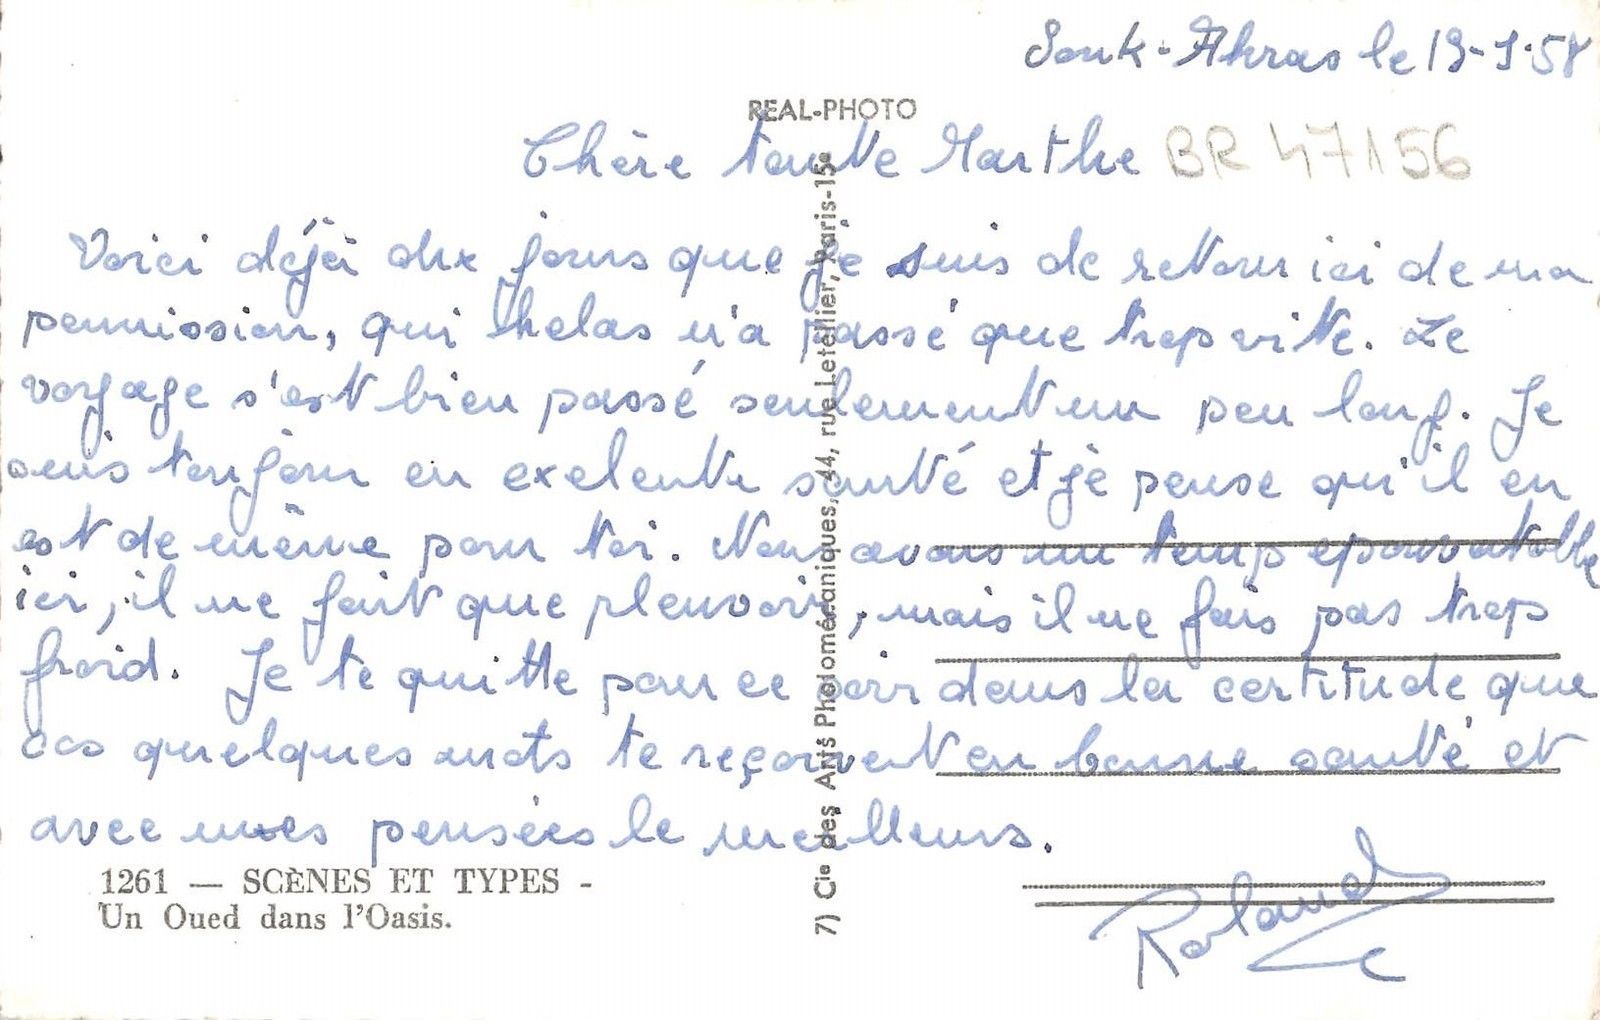 Souk-Ahras le 19-1-58
REAL-PHOTO
Chère tante Marthe
BR 47156
Voici déjà deux jours que je suis de retour ici de ma
permission, qui helas n'a passé que trop vite. Le
voyage s'est bien passé seulement un peu long. Je
suis toujour en exelente santé et je pense qu'il en
est de même pour toi. Nous avons un temp epouvatable
ici, il ne fait que pleuvoir, mais il ne fais pas trop
froid. Je te quitte pour ce soir dans la certitude que
ces quelques mots te reçoivent en bonne santé et
avec mes pensées le meilleurs.
Roland
1261 — SCÈNES ET TYPES -
Un Oued dans l'Oasis.
7) Cie des Arts Photomécaniques, 44, rue Letellier, Paris-15e